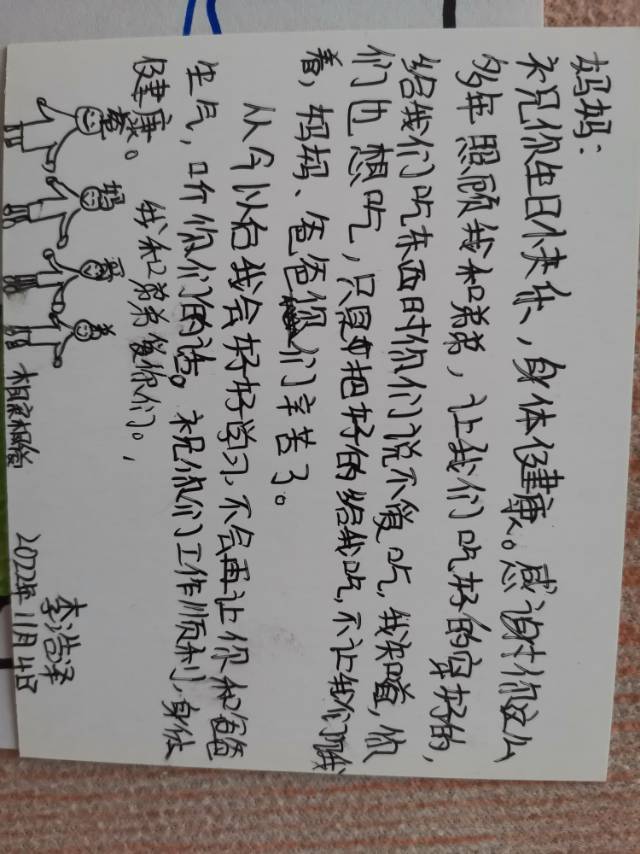 妈妈:
祝你生日快乐,身体健康。感谢你这么
多年照顾我和弟弟,让我们吃好的穿好的,
给我们吃东西时你们说不爱吃,我知道,你
们也想吃,只是把好的给我吃,不让我们饿
着,妈妈、爸爸你们辛苦了。
从今以后我会好好学习,不会再让你和爸爸
生气,听你们的话。祝你们工作顺利,身体
健康。
我和弟弟爱你们。
爸
妈
弟
相亲相爱
李浩泽
2022年11月4日